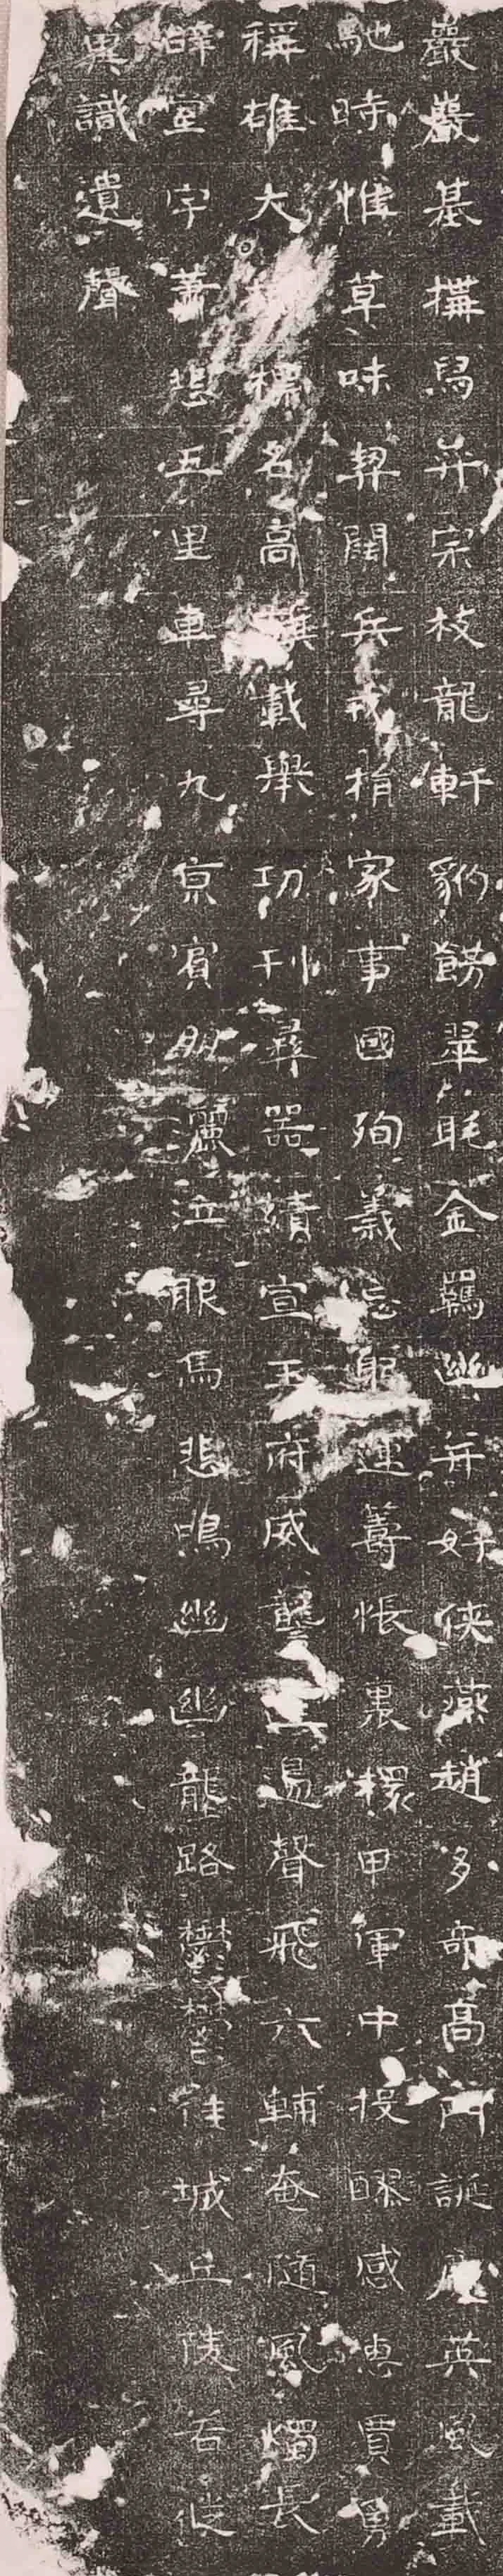 巖巖基搆舄弈宗枝龍軒豹飾翠眊金羈幽并好俠燕趙多奇高門誕應英風載
馳時惟草昧契闊兵戎捐家事國殉義忘躬運籌帳裏擐甲軍中投醪感惠賈勇
稱雄大標名高旗載舉功刊彝器績宣王府威讋三邊聲飛六輔奄隨風燭長
辭室宇蕭悲五里車尋九京賓朋灑泣服馬悲鳴幽幽龍路鬱鬱佳城丘陵若徙
輿識遺聲